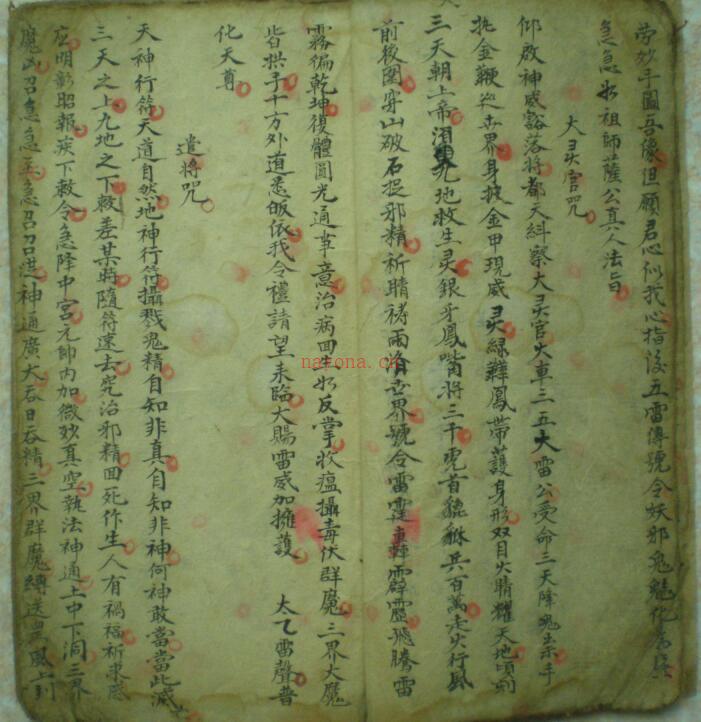 劳妙手圖吾像但願君心似我心指後五雷傳號令妖邪鬼魅化為塵
急急如祖師薩公真人法旨
大灵官咒
仰啟神威豁落將都天糾察大灵官火車三五大雷公受命三天降鬼祟手
执金鞭巡世界身披金甲現威灵绿鞾鳳带護身形双目火睛耀天地頃刻
三天朝上帝須臾九地救生灵銀牙鳳嘴將三千虎首貔貅兵百萬走火行風
前後圍穿山破石捉邪精祈晴祷雨濟世界號令雷霆轟霹靂飛騰雷
霧徧乾坤復體圓光通掌意治病回生如反掌收瘟攝毒伏群魔三界大魔
皆拱手十方外道悉皈依我今禮請望来臨大賜雷威加擁護 太乙雷聲普
化天尊
遣將咒
天神行符天道自然地神行符攝戮鬼精自知非真自知非神何神敢當當此滅
三天之上九地之下敕差某將隨符速去究治邪精回死作生人有禍福祈求感
应明彰昭報疾下敕令急降中宮元帥内加微妙真空執法神通上中下洞三界
魔凶召急急至急召召進神通廣大吞日吞精三界群魔縛送
narona.cn